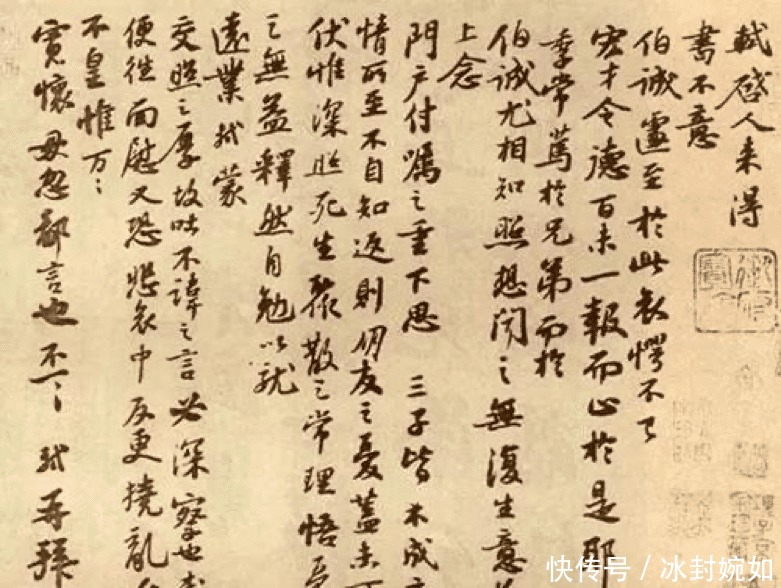 軾啓人来得
書不意
伯誠遽至於此哀愕不已
宏才令德百未一報而止於是耶
季常篤於兄弟而於
伯誠尤相知照想聞之無復生意
上念
門户付囑之重下思 三子皆不成
情所至不自知返則朋友之憂蓋未
伏惟深照死生聚散之常理悟憂
之無益釋然自勉以就
遠業軾蒙
交照之厚故吐不諱之言必深察也
便往面慰又恐悲哀中反更撓亂
不皇惟万万
寛懷毋忽鄙言也不一一 軾再拜
快传号/冰封婉如